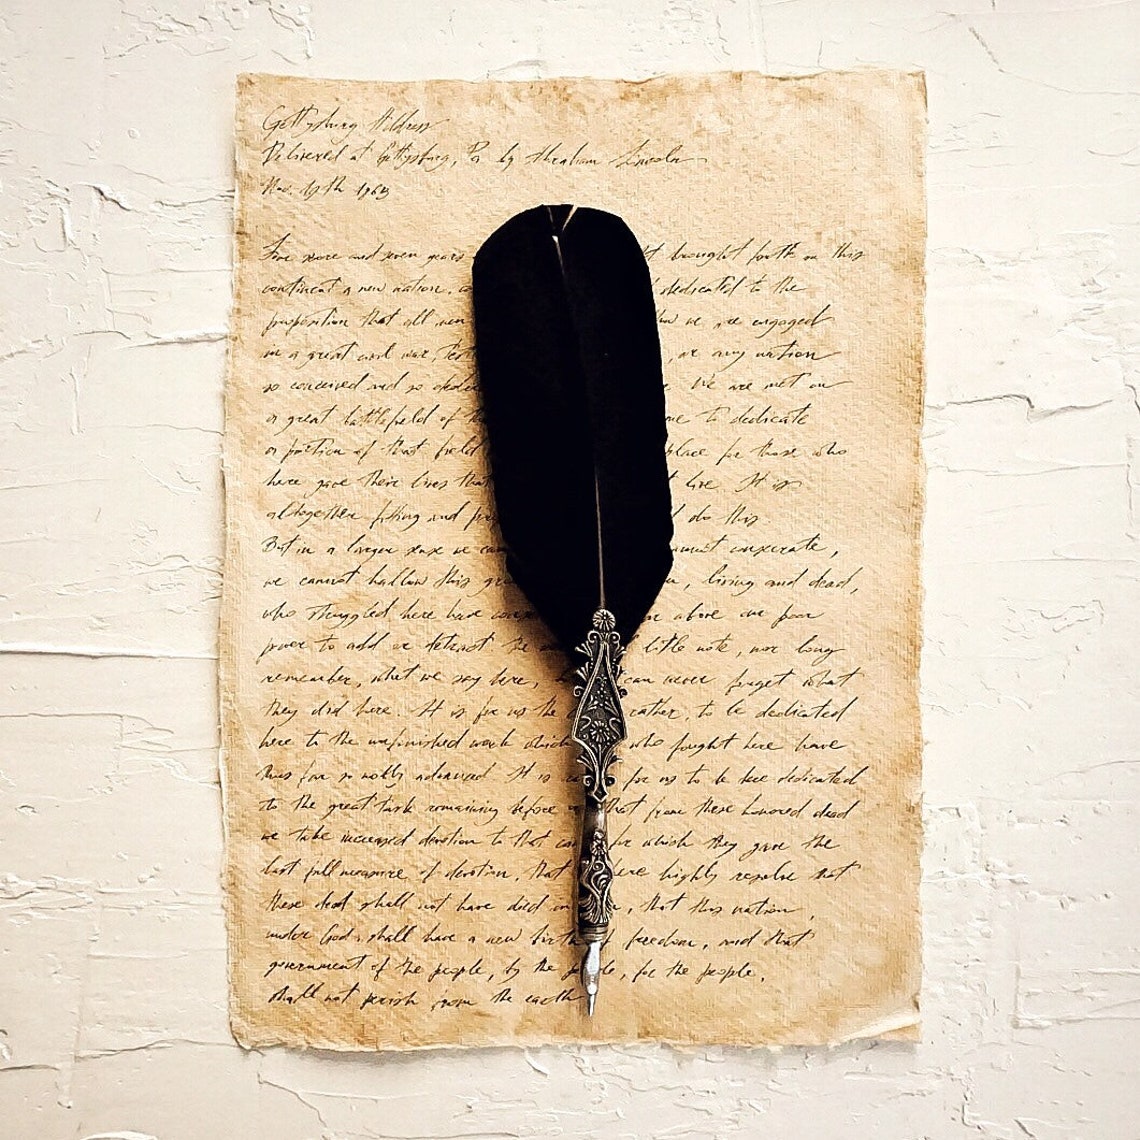 Gettysburg Address
Delivered at Gettysburg, Pa by Abraham Lincoln
Nov. 19th 1863
Four score and seven years brought forth on this
continent a new nation, dedicated to the
proposition that all men we are engaged
in a great civil war, or any nation
so conceived and so We are met on
a great battlefield of to dedicate
a portion of that field place for those who
here gave their lives that live It is
altogether fitting and do this
But in a larger sense we consecrate,
we cannot hallow this living and dead,
who struggled here have above our poor
power to add or detract little note, nor long
remember, what we say here, can never forget what
they did here. It is for us the rather, to be dedicated
here to the unfinished work which who fought here have
thus far so nobly advanced It is for us to be here dedicated
to the great task remaining before that from these honored dead
we take increased devotion to that for which they gave the
last full measure of devotion, that highly resolve that
these dead shall not have died in , that this nation,
under God, shall have a new birth freedom, and that
government of the people, by the , for the people,
shall not perish from the earth